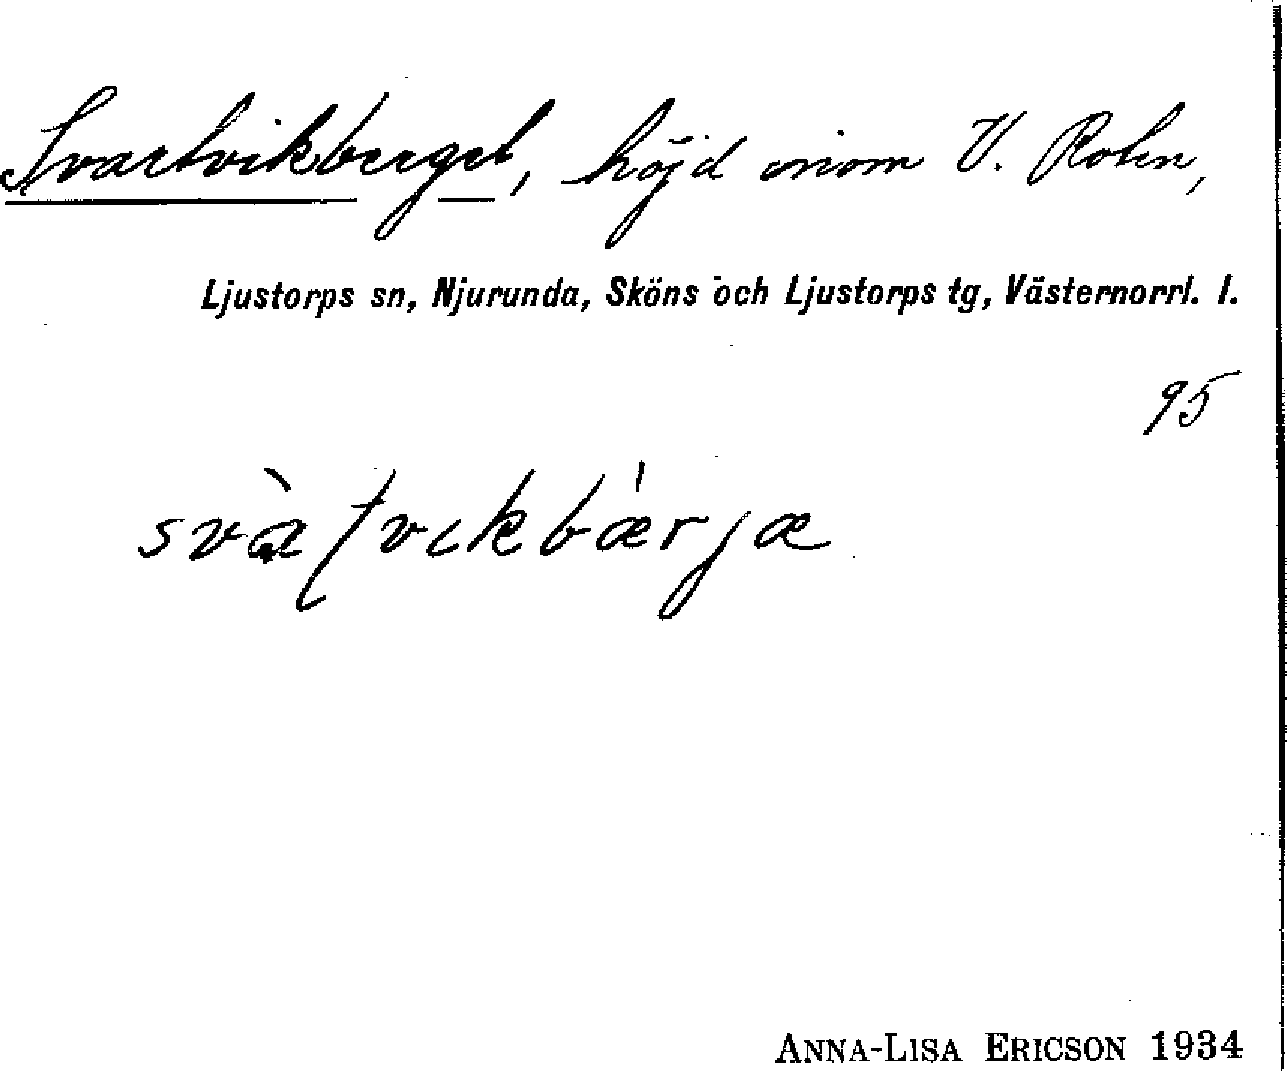 Svartvikberget, höjd inom V. Roten,
Ljustorps sn, Njurunda, Sköns och Ljustorps tg, Västernorrl. l.
95
ANNA-LISA ERICSON 1934